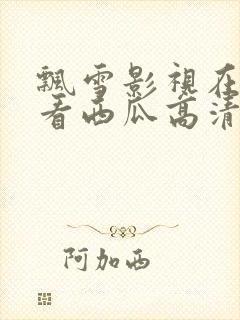 飄雪影視在
看西瓜高清
阿加西